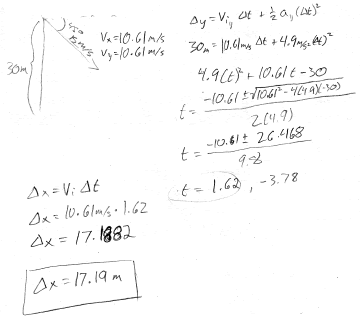 30m
45°
15 m/s
Vx = 10.61 m/s
Vy = 10.61 m/s
Δy = Viy Δt + ½ ay (Δt)²
30m = 10.61m/s Δt + 4.9m/s² (Δt)²
4.9(t)² + 10.61t - 30
t = -10.61 ± √10.61² - 4(4.9)(-30)
2(4.9)
t = -10.61 ± 26.468
9.8
t = 1.62, -3.78
Δx = Vi Δt
Δx = 10.61m/s · 1.62
Δx = 17.1882
Δx = 17.19 m